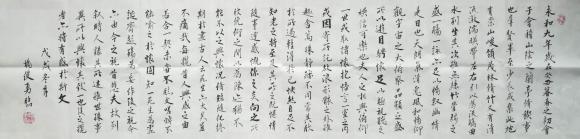 永和九年歲在癸丑暮春之初會
于會稽山陰之蘭亭脩禊事
也群賢畢至少長咸集此地
有崇山峻領茂林脩竹又有清
流激湍暎帶左右引以為流觴曲
水列坐其次雖無絲竹管弦之
盛一觴一詠亦足以暢敘幽情
是日也天朗氣清惠風和暢仰
觀宇宙之大俯察品類之盛
所以遊目騁懷足以極視聽之
娛信可樂也夫人之相與俯仰
一世或取諸懷抱悟言一室之內
或因寄所託放浪形骸之外雖
趣舍萬殊靜躁不同當其欣
於所遇暫得於己快然自足不
知老之將至及其所之既惓情
隨事遷感慨係之矣向之所
欣俛仰之間以為陳迹猶不
能不以之興懷況脩短隨化終
期於盡古人云死生亦大矣豈
不痛哉每覽昔人興感之由
若合一契未嘗不臨文嗟悼不
能喻之於懷固知一死生為虛
誕齊彭殤為妄作後之視今
亦由今之視昔悲夫故列
敘時人錄其所述雖世殊事
異所以興懷其致一也後之攬
者亦將有感於斯文
戊戌冬月